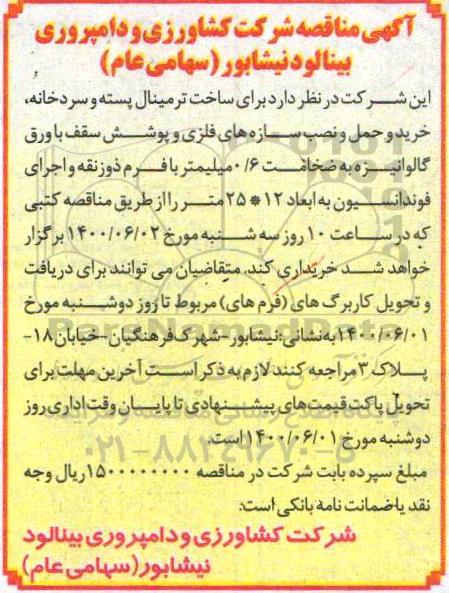 آگهی مناقصه شرکت کشاورزی و دامپروری
بینالود نیشابور (سهامی عام)
این شرکت در نظر دارد برای ساخت ترمینال پسته و سردخانه،
خرید و حمل و نصب سازه های فلزی و پوشش سقف با ورق
گالوانیزه به ضخامت ۰/۶ میلیمتر با فرم ذوزنقه و اجرای
فوندانسیون به ابعاد ۱۲ * ۲۵ متر را از طریق مناقصه کتبی
که در ساعت ۱۰ روز سه شنبه مورخ ۱۴۰۰/۰۶/۰۲ برگزار
خواهد شد خریداری کند. متقاضیان می توانند برای دریافت
و تحویل کاربرگ های (فرم های) مربوط تا روز دوشنبه مورخ
۱۴۰۰/۰۶/۰۱ به نشانی: نیشابور - شهرک فرهنگیان - خیابان ۱۸ -
پلاک ۳ مراجعه کنند لازم به ذکر است آخرین مهلت برای
تحویل پاکت قیمت های پیشنهادی تا پایان وقت اداری روز
دوشنبه مورخ ۱۴۰۰/۰۶/۰۱ است.
۰۲۱-۸۸۳۴۹۶۷۰-۵
مبلغ سپرده بابت شرکت در مناقصه ۱۵۰۰۰۰۰۰۰۰ ریال وجه
نقد یا ضمانت نامه بانکی است.
شرکت کشاورزی و دامپروری بینالود
نیشابور (سهامی عام)